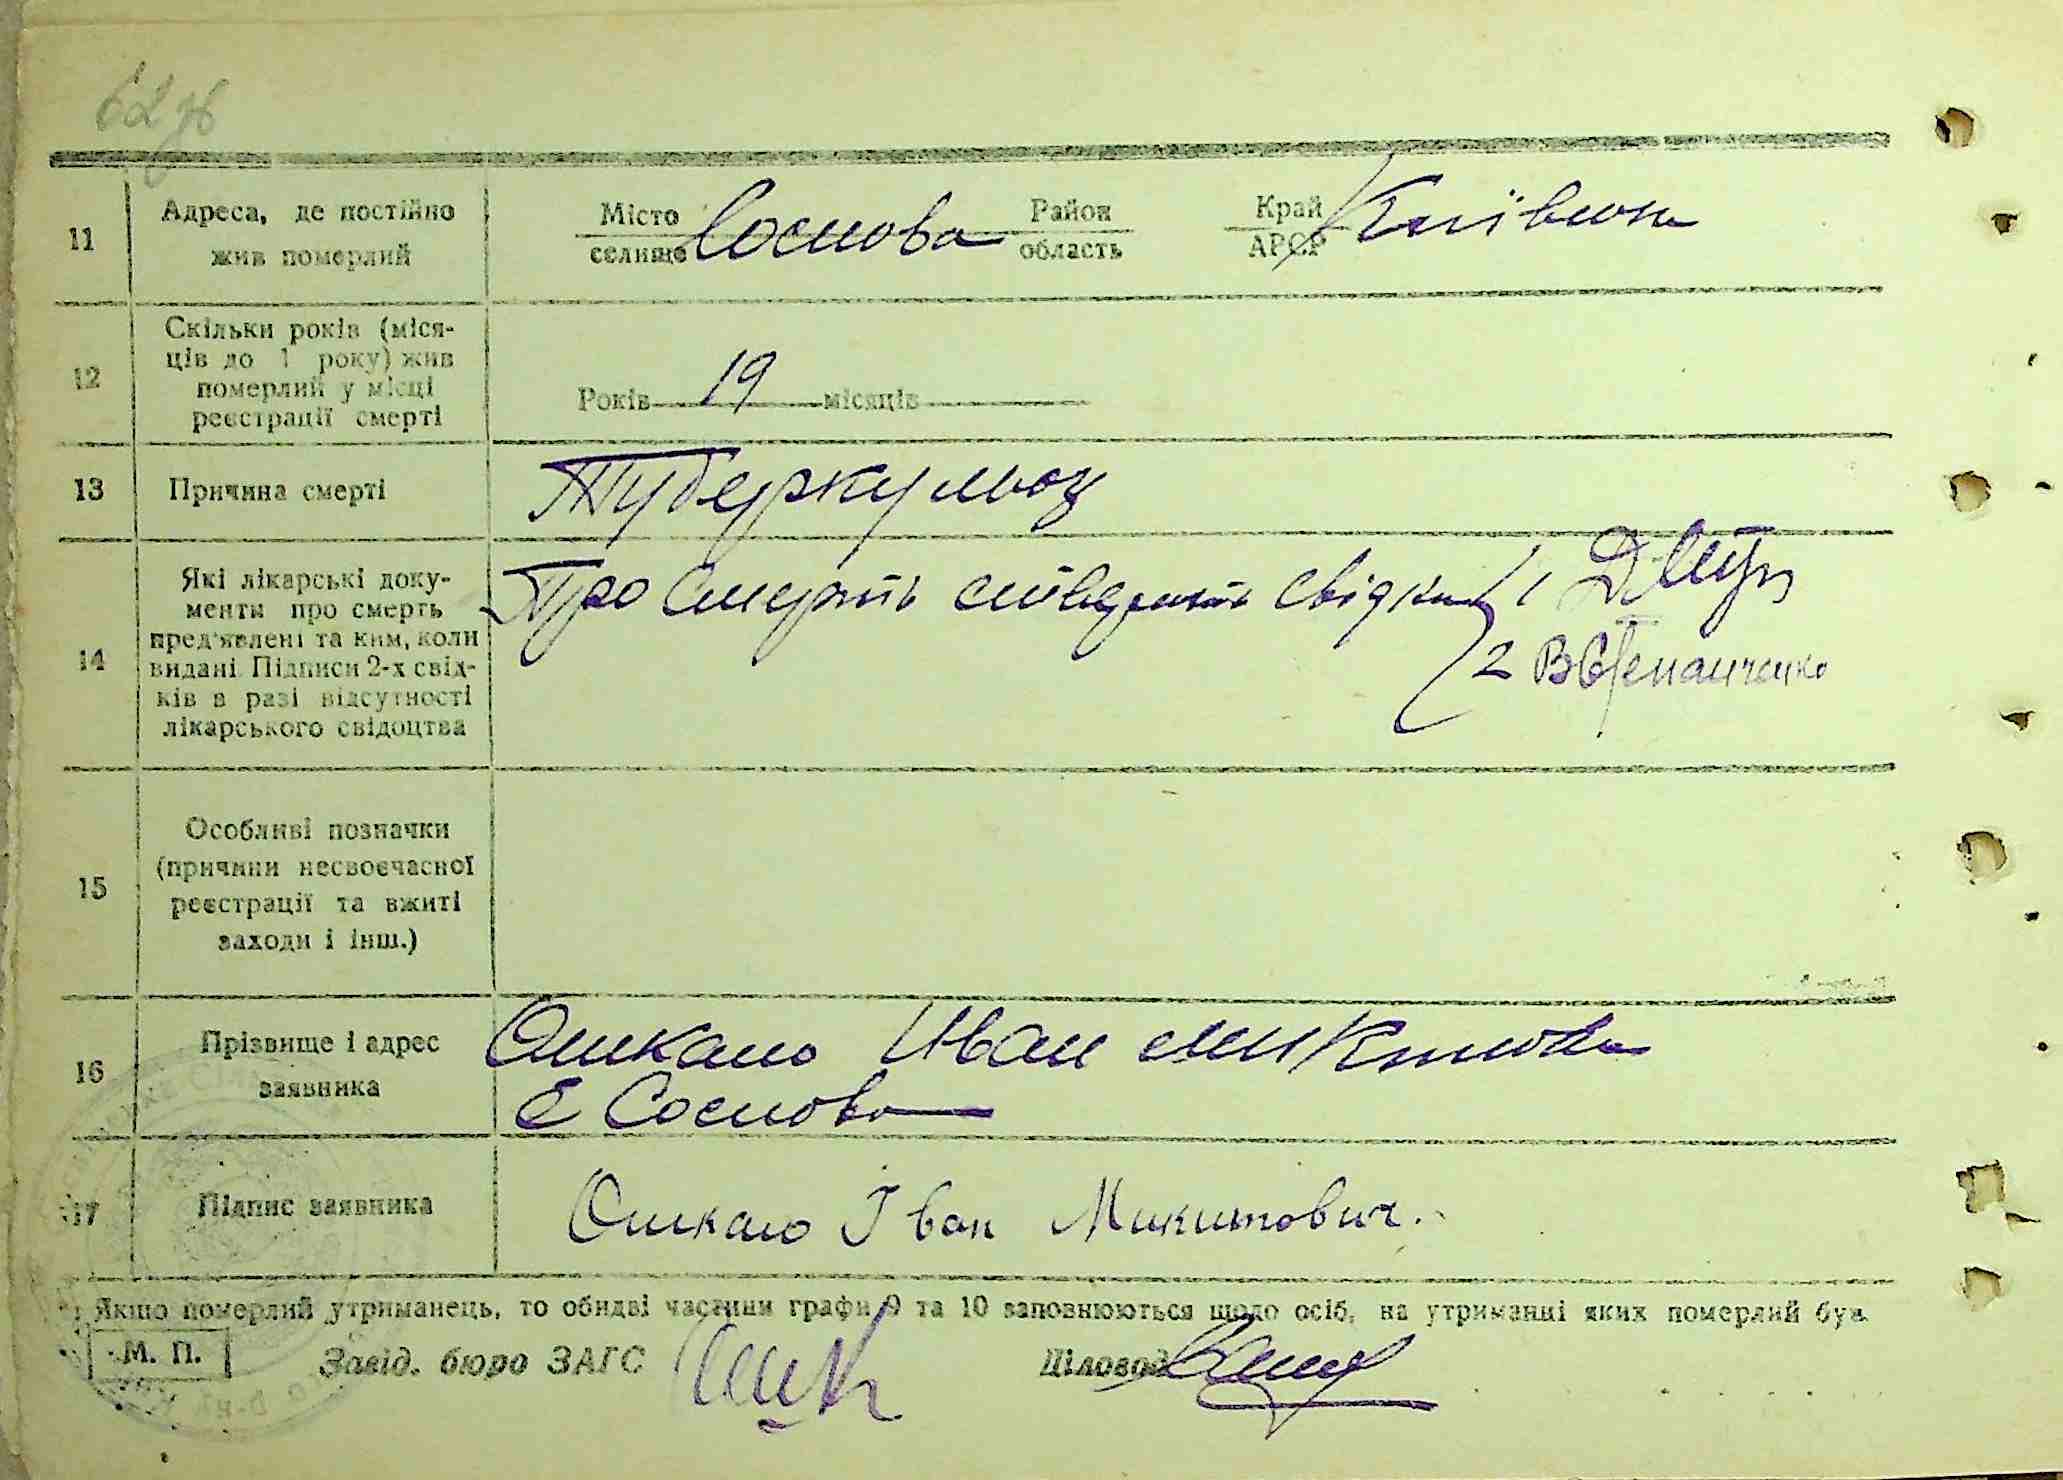 62 зв
11 Адреса, де постійно жив померлий
Місто селище Соснова Район область Край АРСР Київська
12 Скільки років (міся-
ців до 1 року) жив
померлий у місці
реєстрації смерті
Років 19 місяців
13 Причина смерті Туберкульоз
14 Які лікарські доку-
менти про смерть
пред'явлені та ким, коли
видані. Підписи 2-х свід-
ків в разі відсутності
лікарського свідоцтва
Про смерть свідки 1
2 В Степанченко
15 Особливі позначки
(причини несвоєчасної
реєстрації та вжиті
заходи і інш.)
16 Прізвище і адрес
заявника
Ошкало Иван Микитови
с Соснова
17 Підпис заявника Ошкало Іван Микитович.
Якщо померлий утриманець, то обидві частини графи 9 та 10 заповнюються щодо осіб, на утриманні яких померлий був.
М. П. Завід. бюро ЗАГС Діловод